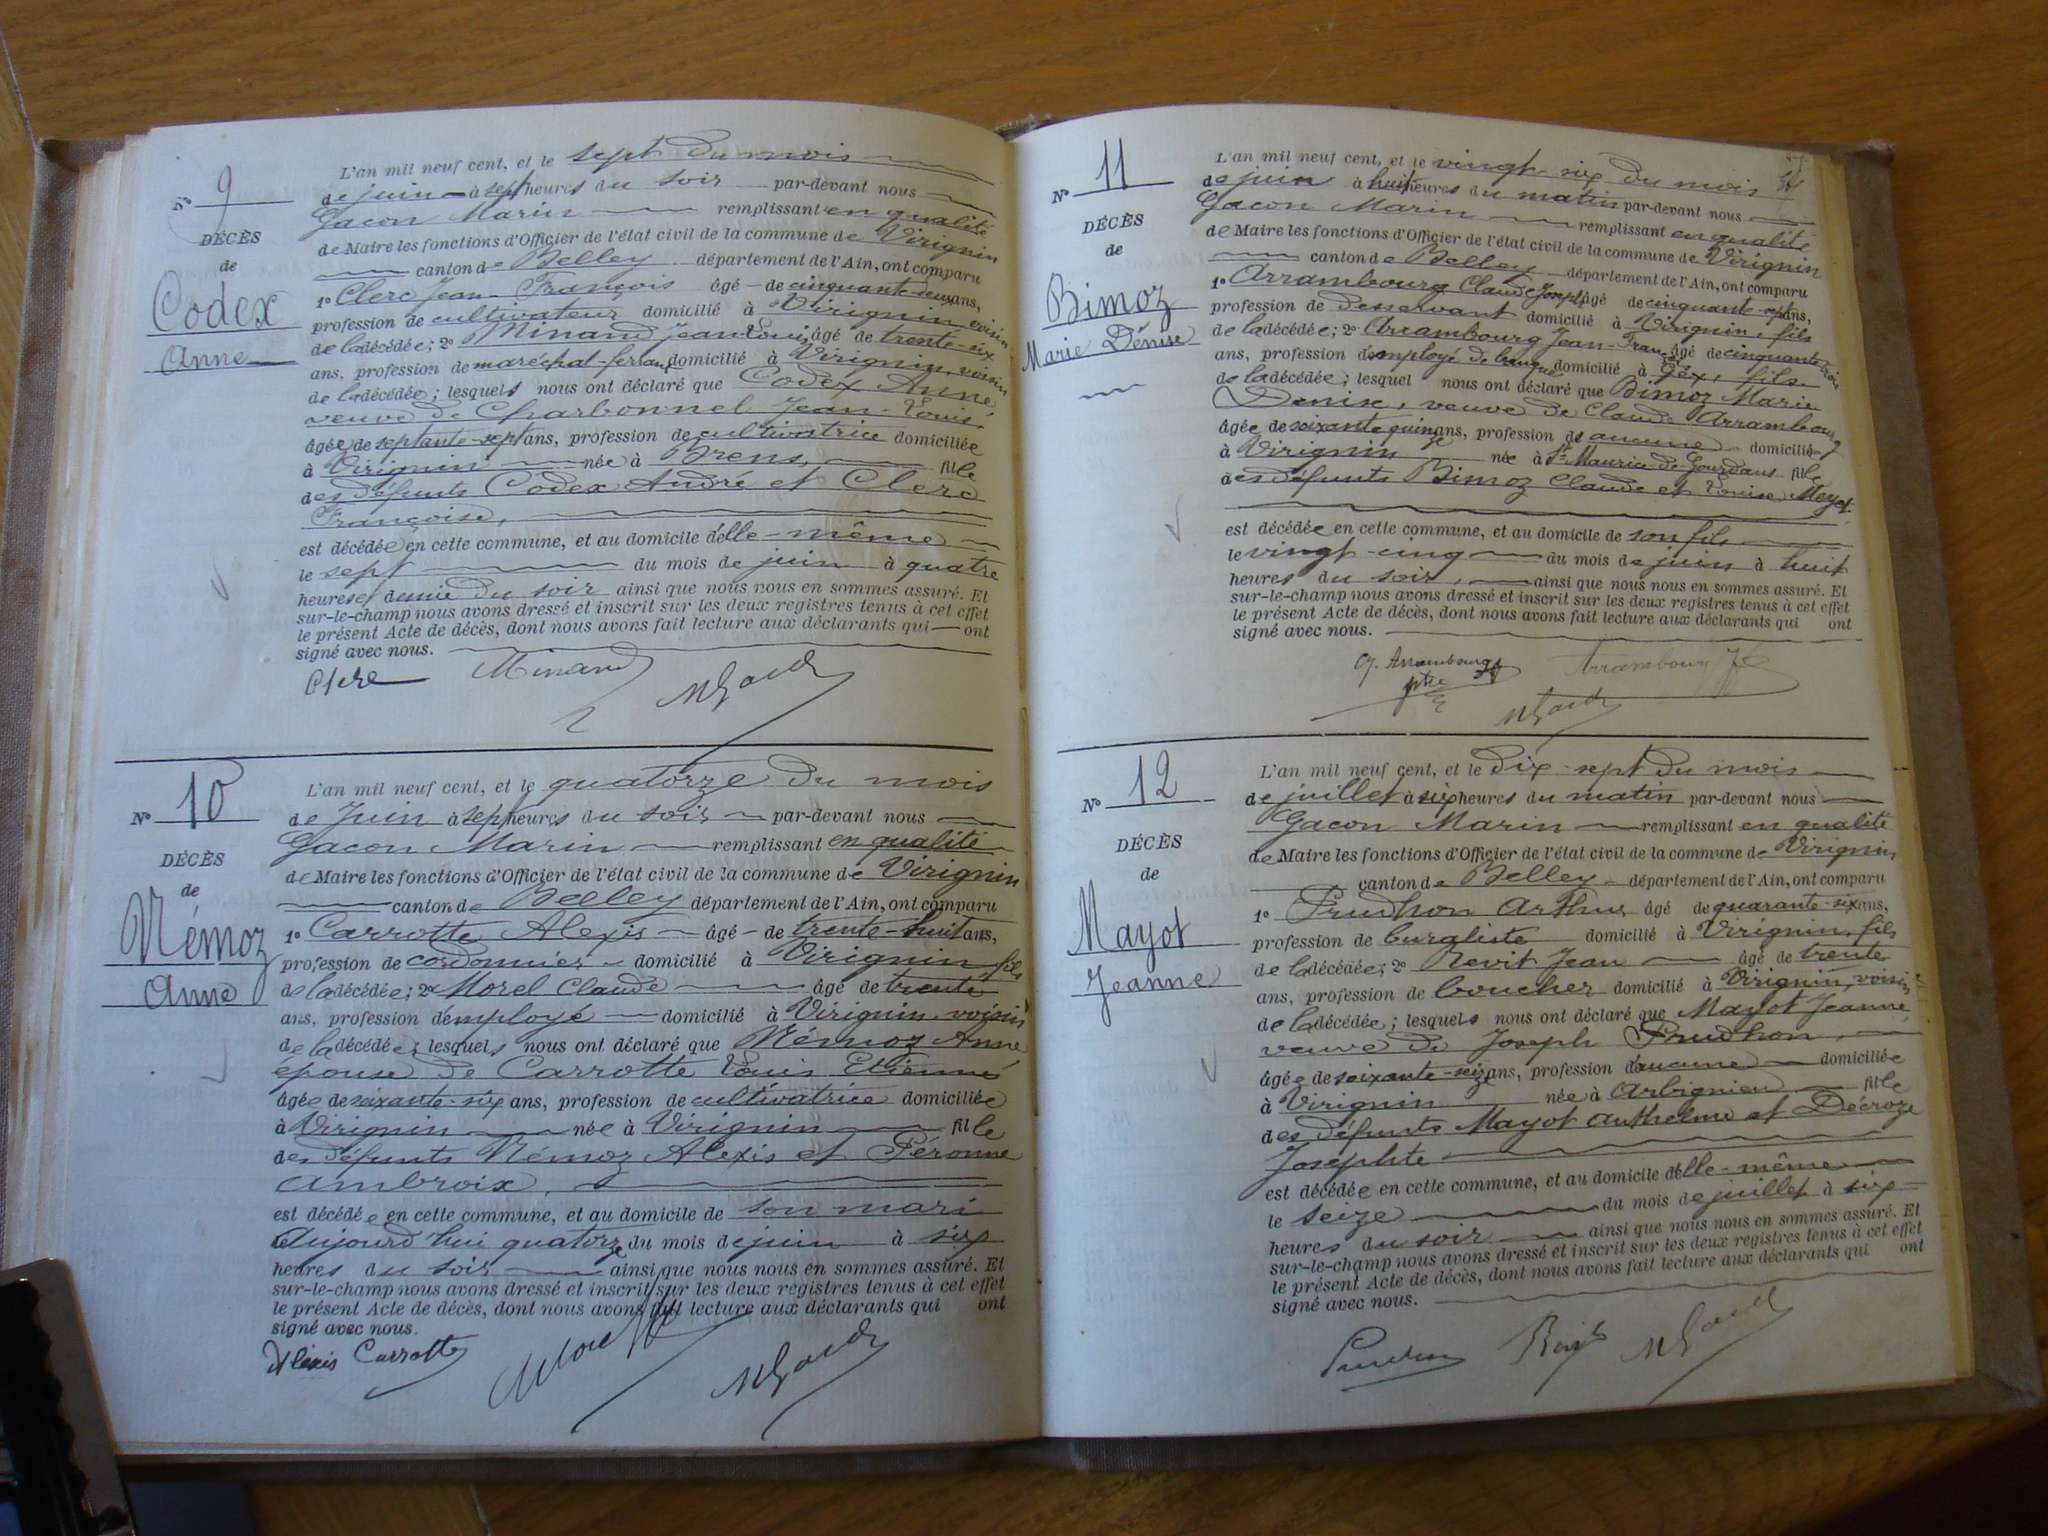 N° 9
DÉCÈS
de
Codex
Anne
L'an mil neuf cent, et le sept du mois
de juin à sept heures du soir par-devant nous
Gacon Marin remplissant en qualité
de Maire les fonctions d'Officier de l'état civil de la commune de Virignin
canton de Belley département de l'Ain, ont comparu
1° Clerc Jean François âgé de cinquante-deux ans,
profession de cultivateur domicilié à Virignin, voisin
de la décédée; 2° Minand Jean Louis, âgé de trente-six
ans, profession de maréchal-ferrant domicilié à Virignin, voisin
de la décédée; lesquels nous ont déclaré que Codex Anne,
veuve de Charbonnel Jean-Louis,
âgée de septante-sept ans, profession de cultivatrice domiciliée
à Virignin née à Brens, fille
des défunts Codex André et Clerc
Françoise,
est décédée en cette commune, et au domicile d'elle-même
le sept du mois de juin à quatre
heures et demie du soir ainsi que nous nous en sommes assuré. Et
sur-le-champ nous avons dressé et inscrit sur les deux registres tenus à cet effet
le présent Acte de décès, dont nous avons fait lecture aux déclarants qui ont
signé avec nous.
Clerc Minand MGacon
N° 10
DÉCÈS
de
Némoz
Anne
L'an mil neuf cent, et le quatorze du mois
de Juin à sept heures du soir par-devant nous
Gacon Marin remplissant en qualité
de Maire les fonctions d'Officier de l'état civil de la commune de Virignin
canton de Belley département de l'Ain, ont comparu
1° Carrotte Alexis âgé de trente-huit ans,
profession de cordonnier domicilié à Virignin fils
de la décédée; 2° Morel Claude âgé de trente
ans, profession d'employé domicilié à Virignin voisin
de la décédée, lesquels nous ont déclaré que Némoz Anne
épouse de Carrotte Louis Etienne
âgée de soixante-six ans, profession de cultivatrice domiciliée
à Virignin née à Virignin fille
des défunts Némoz Alexis et Péronne
Ambroix,
est décédée en cette commune, et au domicile de son mari
aujourd'hui quatorze du mois de juin à six
heures du soir ainsi que nous nous en sommes assuré. Et
sur-le-champ nous avons dressé et inscrit sur les deux registres tenus à cet effet
le présent Acte de décès, dont nous avons fait lecture aux déclarants qui ont
signé avec nous.
Alexis Carrotte Morel MGacon
N° 11
DÉCÈS
de
Bimoz
Marie Dénise
L'an mil neuf cent, et le vingt-six du mois
de juin à huit heures du matin par-devant nous
Gacon Marin remplissant en qualité
de Maire les fonctions d'Officier de l'état civil de la commune de Virignin
canton de Belley département de l'Ain, ont comparu
1° Arrambourg Claude Joseph âgé de cinquante-sept ans,
profession de desservant domicilié à Virignin, fils
de la décédée; 2° Arrambourg Jean-François âgé de cinquante-trois
ans, profession d'employé de banque domicilié à Gex, fils
de la décédée; lesquel nous ont déclaré que Bimoz Marie
Denise, veuve de Claude Arrambourg
âgée de soixante quinze ans, profession de aucune domiciliée
à Virignin née à St Maurice de Gourdans fille
des défunts Bimoz Claude et Louise Mayot
est décédée en cette commune, et au domicile de son fils
le vingt-cinq du mois de juin à huit
heures du soir, ainsi que nous nous en sommes assuré. Et
sur-le-champ nous avons dressé et inscrit sur les deux registres tenus à cet effet
le présent Acte de décès, dont nous avons fait lecture aux déclarants qui ont
signé avec nous.
Cj. Arrambourg Arrambourg Jf
ptre
MGacon
N° 12
DÉCÈS
de
Mayot
Jeanne
L'an mil neuf cent, et le dix-sept du mois
de juillet à six heures du matin par-devant nous
Gacon Marin remplissant en qualité
de Maire les fonctions d'Officier de l'état civil de la commune de Virignin
canton de Belley département de l'Ain, ont comparu
1° Prudhon Arthur âgé de quarante-six ans,
profession de buraliste domicilié à Virignin, fils
de la décédée; 2° Revit Jean âgé de trente
ans, profession de boucher domicilié à Virignin, voisin
de la décédée; lesquels nous ont déclaré que Mayot Jeanne,
veuve de Joseph Prudhon,
âgée de soixante-seize ans, profession d'aucune domiciliée
à Virignin née à Arbignieu fille
des défunts Mayot Anthelme et Décroze
Josephte
est décédée en cette commune, et au domicile d'elle-même
le seize du mois de juillet à six
heures du soir ainsi que nous nous en sommes assuré. Et
sur-le-champ nous avons dressé et inscrit sur les deux registres tenus à cet effet
le présent Acte de décès, dont nous avons fait lecture aux déclarants qui ont
signé avec nous.
Prudhon Revit MGacon